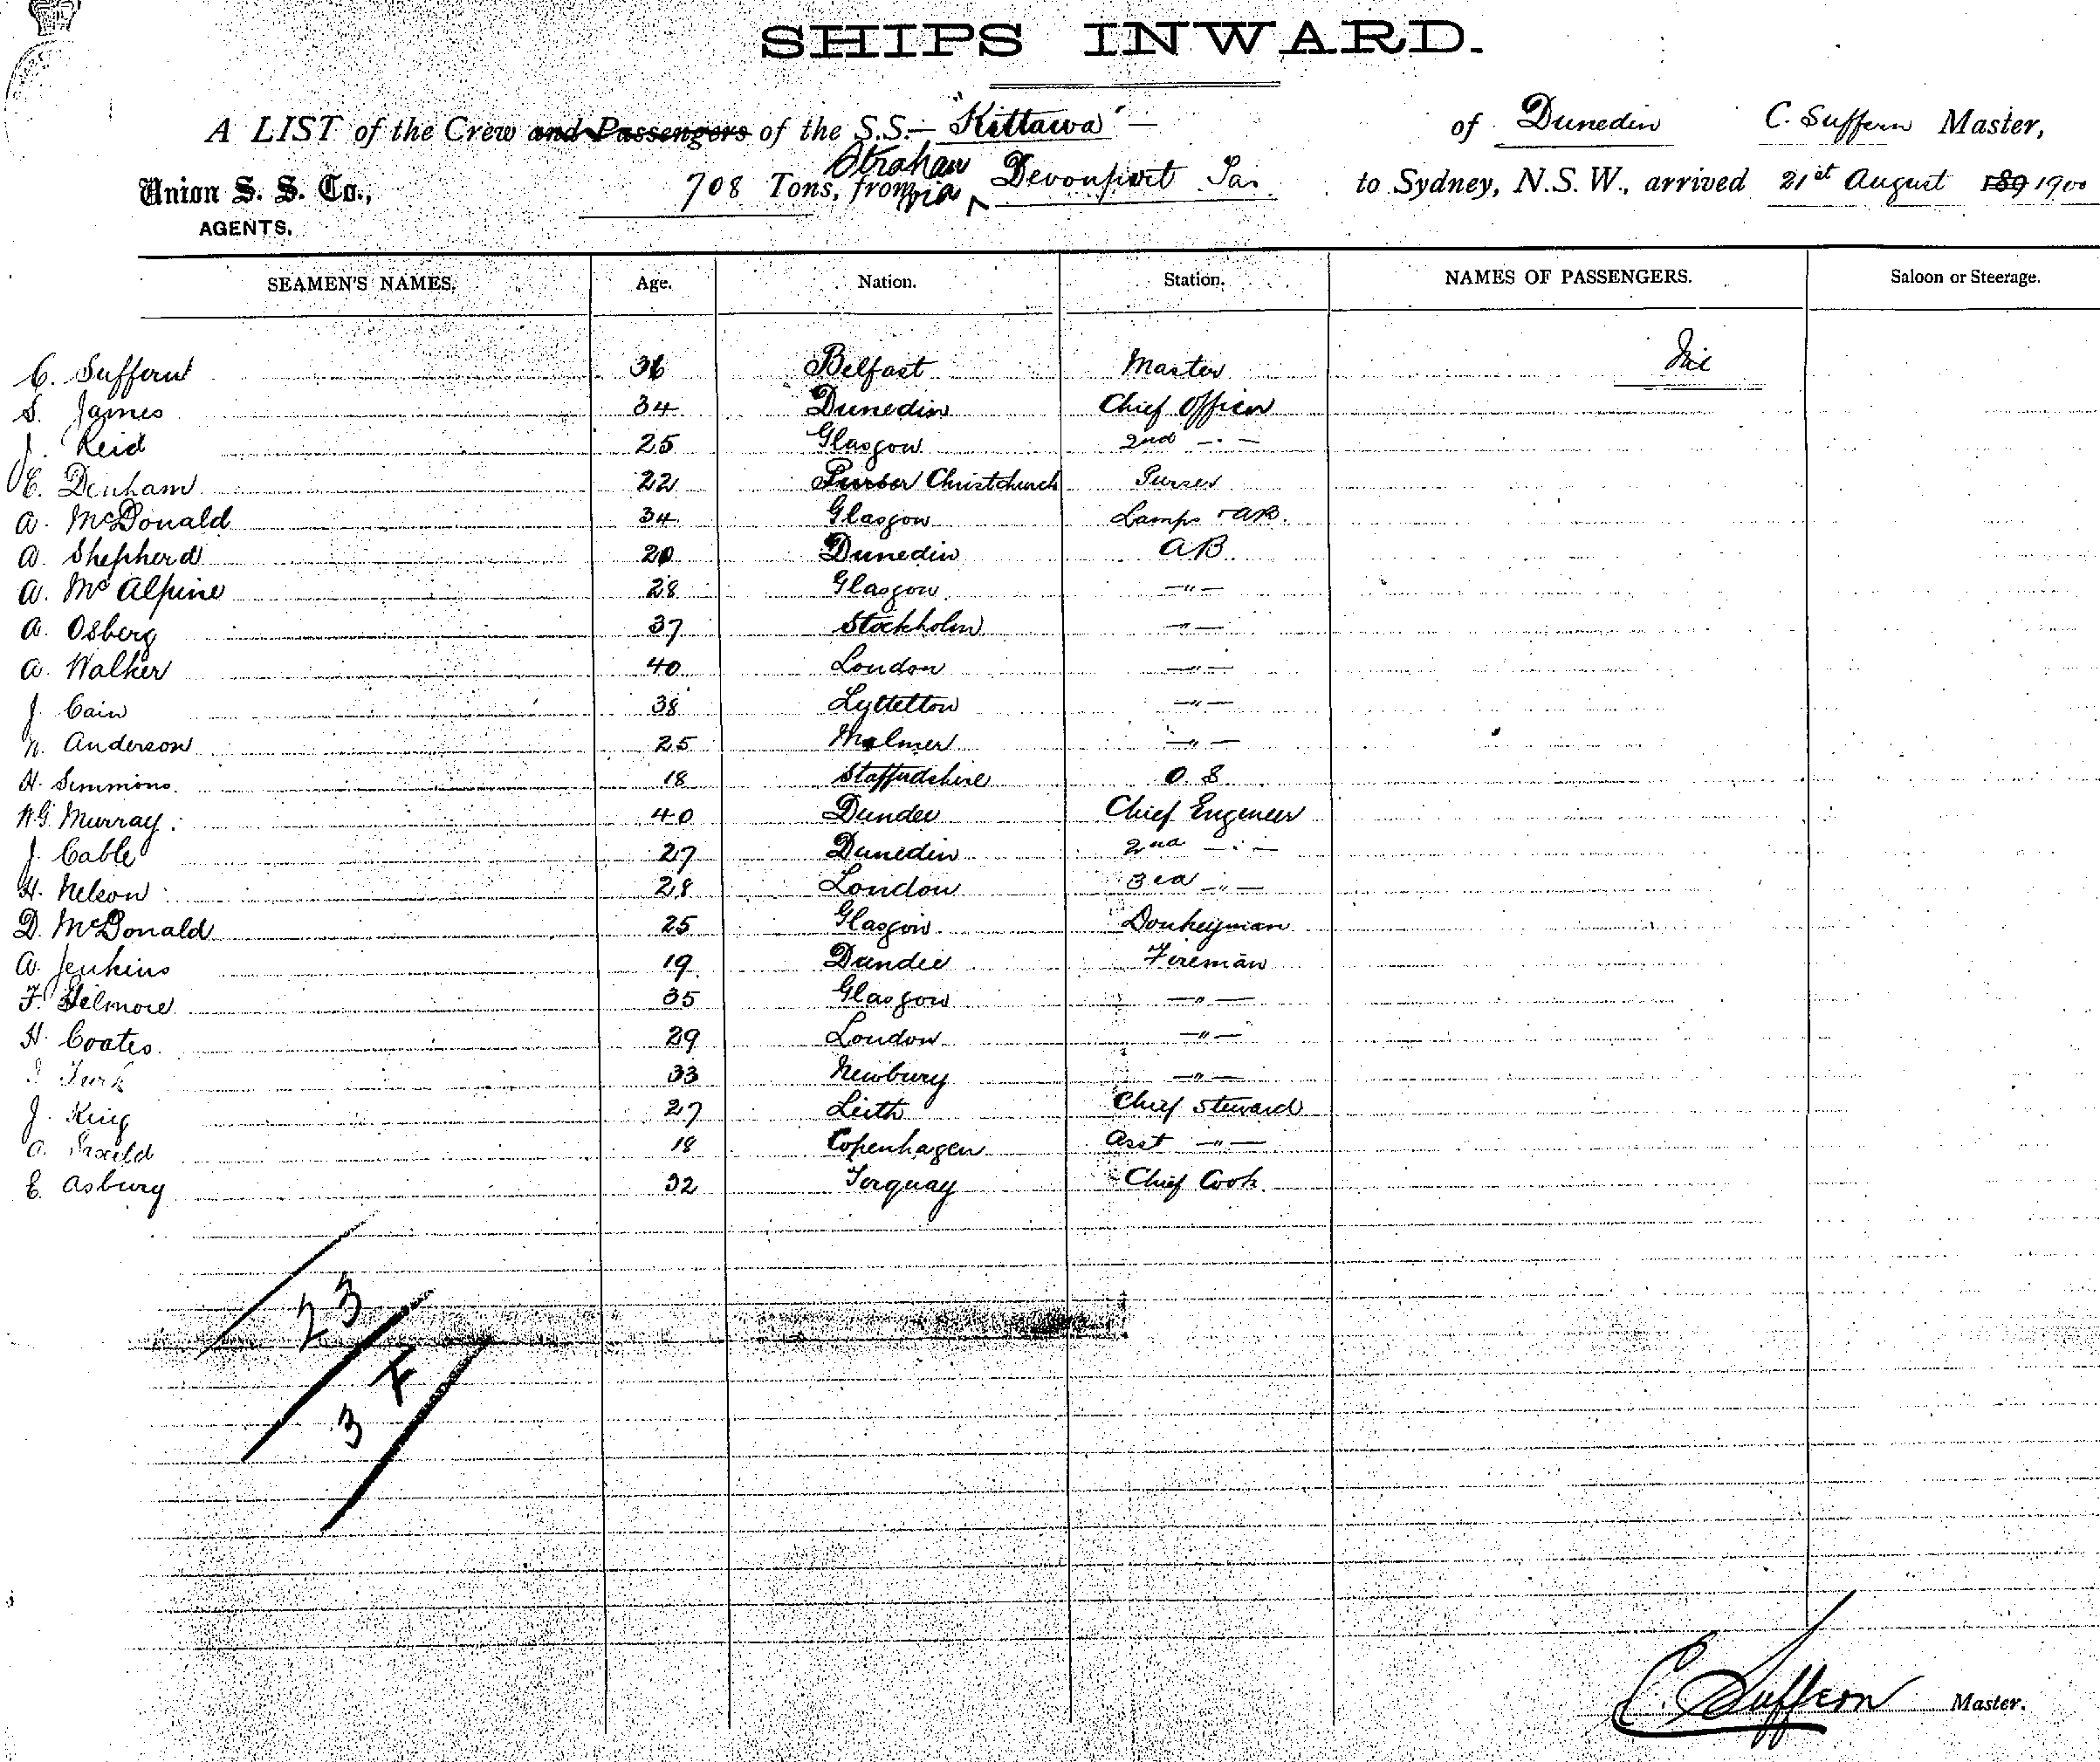 SHIPS INWARD.
A LIST of the Crew and Passengers of the S.S. "Kittawa" of Dunedin C. Suffern Master,
Strahan
Union S. S. Co., 708 Tons, from via Devonport Tas. to Sydney, N.S.W., arrived 21st August 189 1900
AGENTS.
SEAMEN'S NAMES. Age. Nation. Station. NAMES OF PASSENGERS. Saloon or Steerage.
C. Suffern 36 Belfast Master Nil
S. James 34 Dunedin Chief Officer
J. Reid 25 Glasgow 2nd - " -
E. Denham 22 Purser Christchurch Purser
A. McDonald 34 Glasgow Lamps & AB.
A. Shepherd Dunedin AB
A. McAlpine 28 Glasgow - " -
A. Osberg 37 Stockholm - " -
A. Walker 40 London - " -
J. Cain 38 Lyttelton - " -
N. Anderson 25 - " -
H. Simmons 18 Staffordshire O. S
W.G. Murray. 40 Dundee Chief Engineer
J. Cable 27 Dunedin 2nd - " -
H. Nelson 28 London 3rd - " -
D. McDonald 25 Glasgow Donkeyman
A. Jenkins 19 Dundee Fireman
F. Gilmore 35 Glasgow - " -
H. Coates 29 London - " -
Turk 33 Newbury - " -
J. King 27 Leith Chief Steward
A. 18 Copenhagen Asst - " -
E. Asbury 32 Torquay Chief Cook
23
3 F
C. Suffern Master.